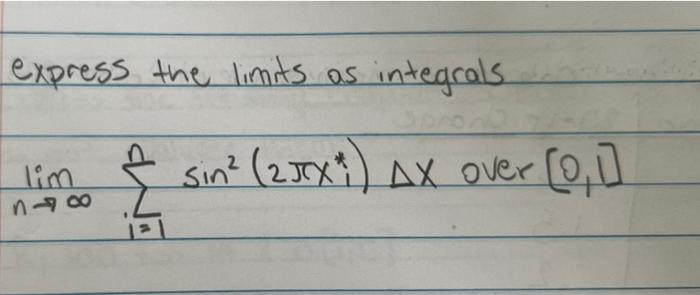 express the limits as integrals
lim n→∞ n∑i=1 sin² (2πx*i) Δx over [0,1]